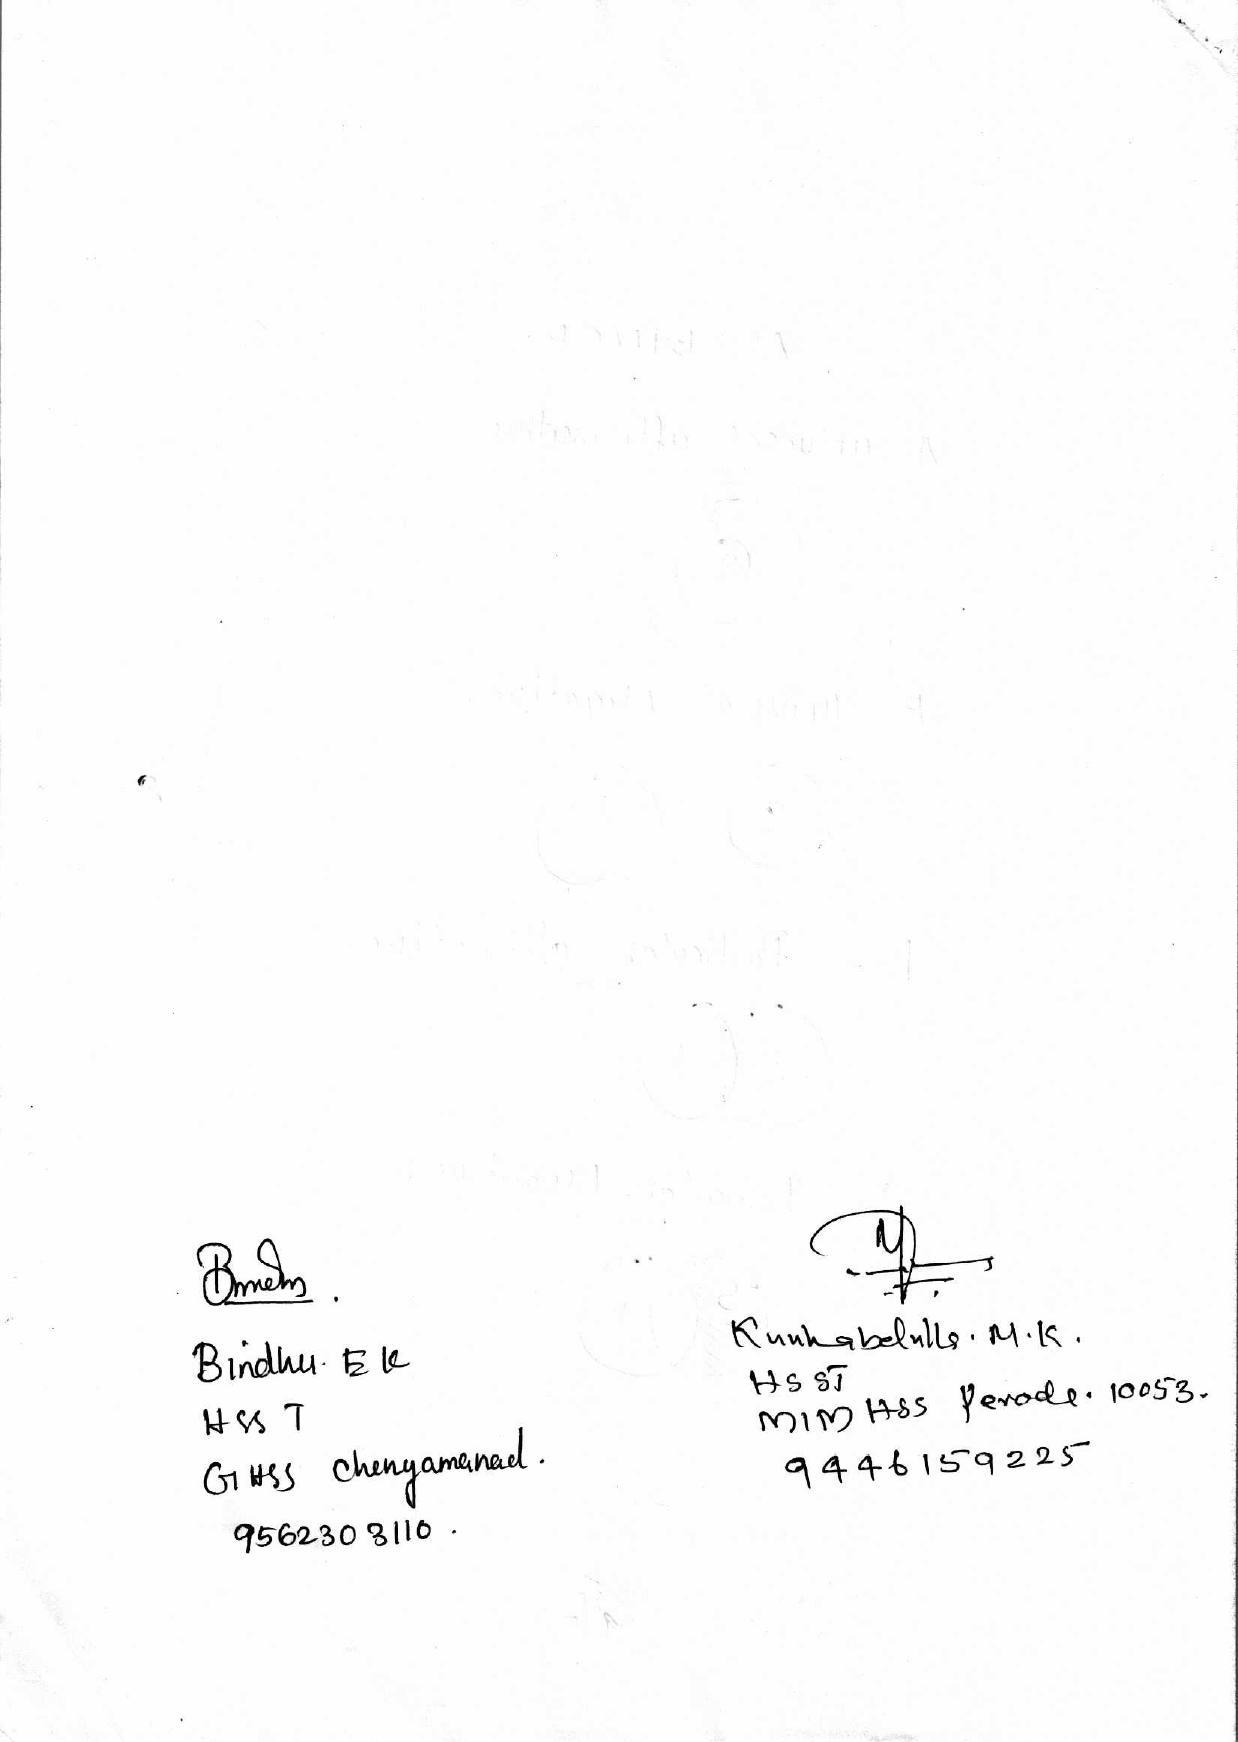 Bindhu. E K
HSS T
GHSS Chenyamanad.
9562308110.
Kunhabdulla. M.K.
HSST
MIM HSS Perode. 10053.
9446159225